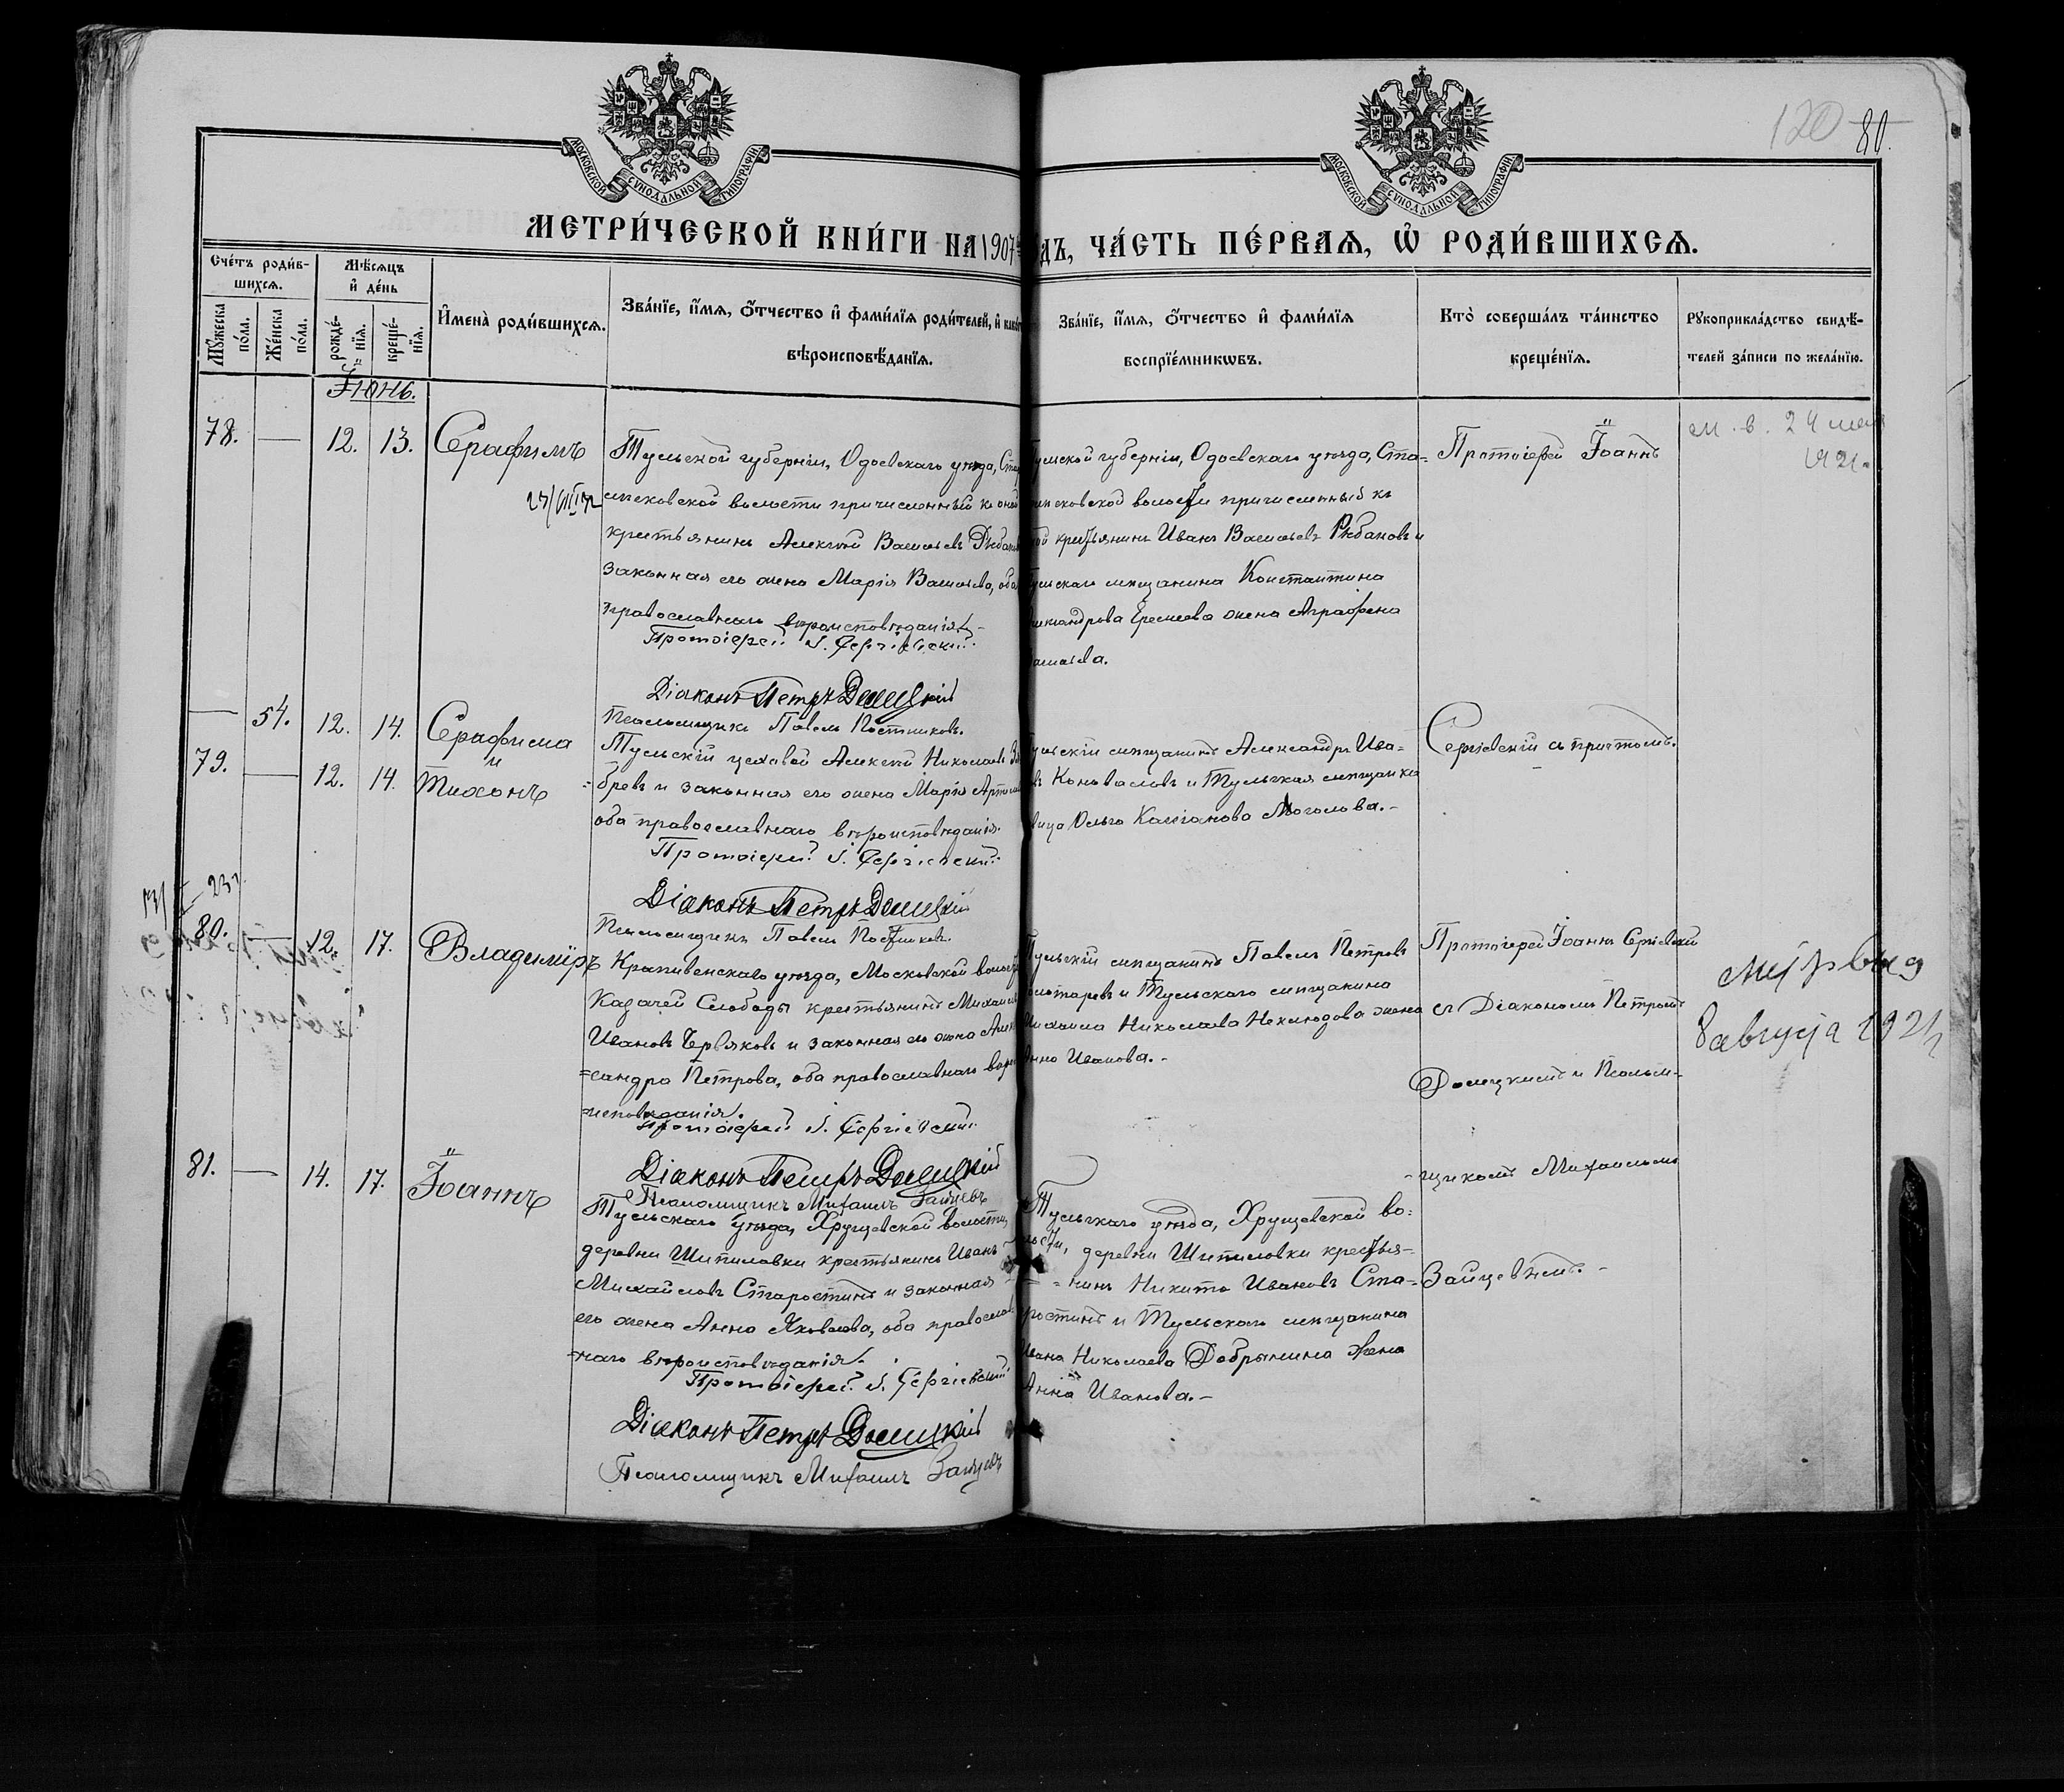 120 80.
МОСКОВСКОЙ СѴНОДАЛЬНОЙ ТИПОГРАФІИ
МОСКОВСКОЙ СѴНОДАЛЬНОЙ ТИПОГРАФІИ
МЕТРИ́ЧЕСКОЙ КНИ́ГИ НА 1907 ДЪ, ЧА́СТЬ ПЕ́РВАѦ, Ѡ҆ РОДИ́ВШИХСѦ.
Сче́тъ роди́в-
шихсѧ.
Мѣ́сѧцъ
и҆ де́нь
Мꙋ́жеска по́ла.
Же́нска по́ла.
рожде́-
нїѧ.
креще́-
нїѧ.
И҆мена̀ роди́вшихсѧ.
Зва́нїе, и҆́мѧ, ѻ҆́тчество и҆ фами́лїѧ роди́телей, и҆
вѣроисповѣ́данїѧ.
Зва́нїе, и҆́мѧ, ѻ҆́тчество и҆ фами́лїѧ
воспрїе́мникѡвъ.
Кто̀ соверша́лъ та́инство
креще́нїѧ.
Рꙋкоприкла́дство свидѣ́-
телей за́писи по жела́нїю.
Іюнь.
78. — 12. 13. Серафимъ
Тульской губерніи, Одоевскаго уѣзда, Ста
сковской волости причисленный къ оной
крестьянинъ Алексѣй Васильевъ
законная его жена Марія Васильева, оба
православнаго вѣроисповѣданія.
Протоіерей І. Сергіевскій.
Діаконъ Петръ Долецкій
Псаломщикъ Павелъ Постниковъ.
Тульской губерніи, Одоевскаго уѣзда, Ста-
сковской волости причисленный къ
ой крестьянинъ Иванъ Васильевъ Рябановъ и
Тульскаго мѣщанина Константина
Александрова Еремеева жена Аграфена
Васильева.
Протоіерей Іоаннъ
м. в. 24
1921.
— 54. 12. 14. Серафима
и
79. — 12. 14. Тихонъ
Тульскій цеховой Алексѣй Николаевъ
=бревъ и законная его жена Марія
оба православнаго вѣроисповѣданія.
Протоіерей І. Сергіевскій.
Діаконъ Петръ Долецкій
Псаломщикъ Павелъ Постниковъ.
Тульскій мѣщанинъ Александръ Ива-
въ Коноваловъ и Тульская мѣщанка
вица Ольга Касіанова Моголова.-
Сергіевскій съ причтомъ.
80. — 12. 17. Владиміръ
Крапивенскаго уѣзда, Московской волости
Казачей Слободы крестьянинъ Михаилъ
Ивановъ Червяковъ и законная его жена Алек
=сандра Петрова, оба православнаго вѣро
=исповѣданія.
Протоіерей І. Сергіевскій.
Діаконъ Петръ Долецкій
Псаломщикъ Михаилъ Зайцевъ
Тульскій мѣщанинъ Павелъ Петровъ
олотаревъ и Тульскаго мѣщанина
Михаила Николаева Неклюдова жена
Анна Иванова.-
Протоіерей Іоаннъ Сергіевскій
съ Діакономъ Петромъ
Долецкимъ и Псалом-
-щикомъ Михаиломъ
Зайцевымъ.-
8 августа 1921
81. — 14. 17. Іоаннъ
Тульскаго уѣзда, Хрущевской волости,
деревни Шипиловки крестьянинъ Иванъ
Михайловъ Старостинъ и законная
его жена Анна Яковлева, оба православ
-наго вѣроисповѣданія.
Протоіерей І. Сергіевскій
Діаконъ Петръ Долецкій
Псаломщикъ Михаилъ Зайцевъ
Тульскаго уѣзда, Хрущевской во-
лости, деревни Шипиловки крестья-
=нинъ Никита Ивановъ Ста-
ростинъ и Тульскаго мѣщанина
Ивана Николаева Добрынина жена
Анна Иванова.-